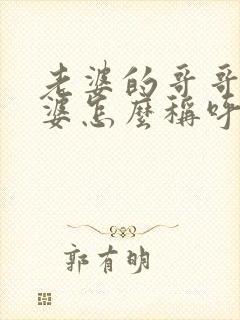 老婆的哥哥
婆怎麼稱呼
郭有明